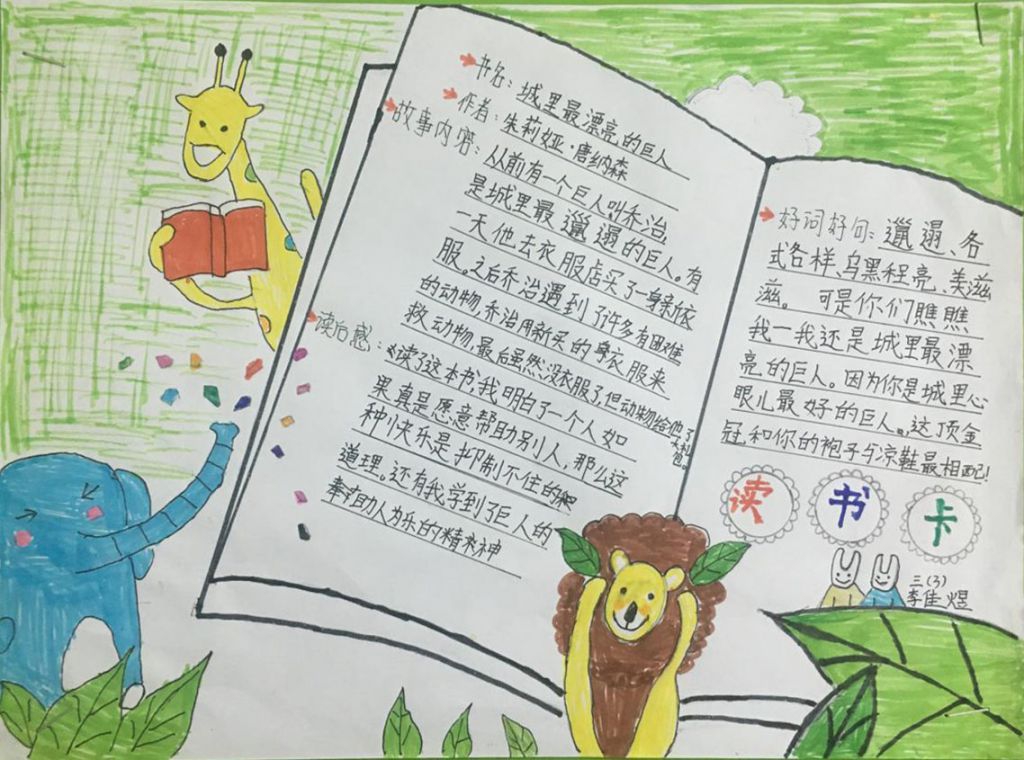 书名：城里最漂亮的巨人
作者：朱莉娅·唐纳森
故事内容：从前有一个巨人叫乔治，
是城里最邋遢的巨人。有
一天他去衣服店买了一身新衣
服。之后乔治遇到了许多有困难
的动物，乔治用新买的衣服来
救动物，最后虽然没衣服了，但动物给他
了
大礼包。
读后感：《读了这本书，我明白了一个人如
果真是愿意帮助别人，那么这
种快乐是抑制不住的
道理。还有我学到了巨人的
助人为乐的精神
好词好句：邋遢、各
式各样、乌黑程亮、美滋
滋。可是你们瞧瞧
我一我还是城里最漂
亮的巨人。因为你是城里心
眼儿最好的巨人。这顶金
冠，和你的袍子与凉鞋最相配!
读 书 卡
三(3)
李佳煜